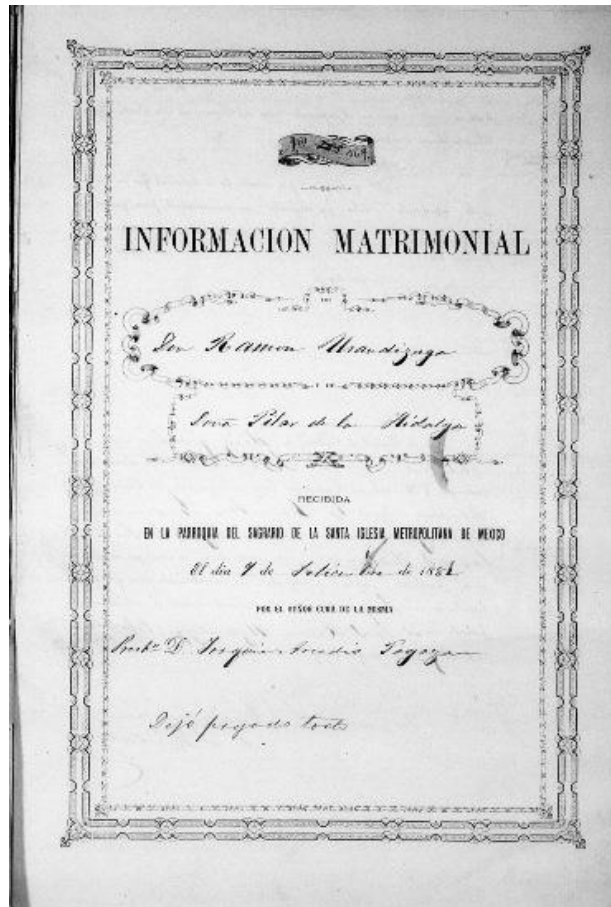 INFORMACION MATRIMONIAL
Don Ramon Urandizaga
Doña Pilar de la Hidalga
RECIBIDA
EN LA PARROQUIA DEL SAGRARIO DE LA SANTA IGLESIA METROPOLITANA DE MEXICO
El dia 9 de de 188
POR EL SEÑOR CURA DE LA MISMA
Presb.º D. Joaquin Arcadio Pagaza
Dejó pagado todo